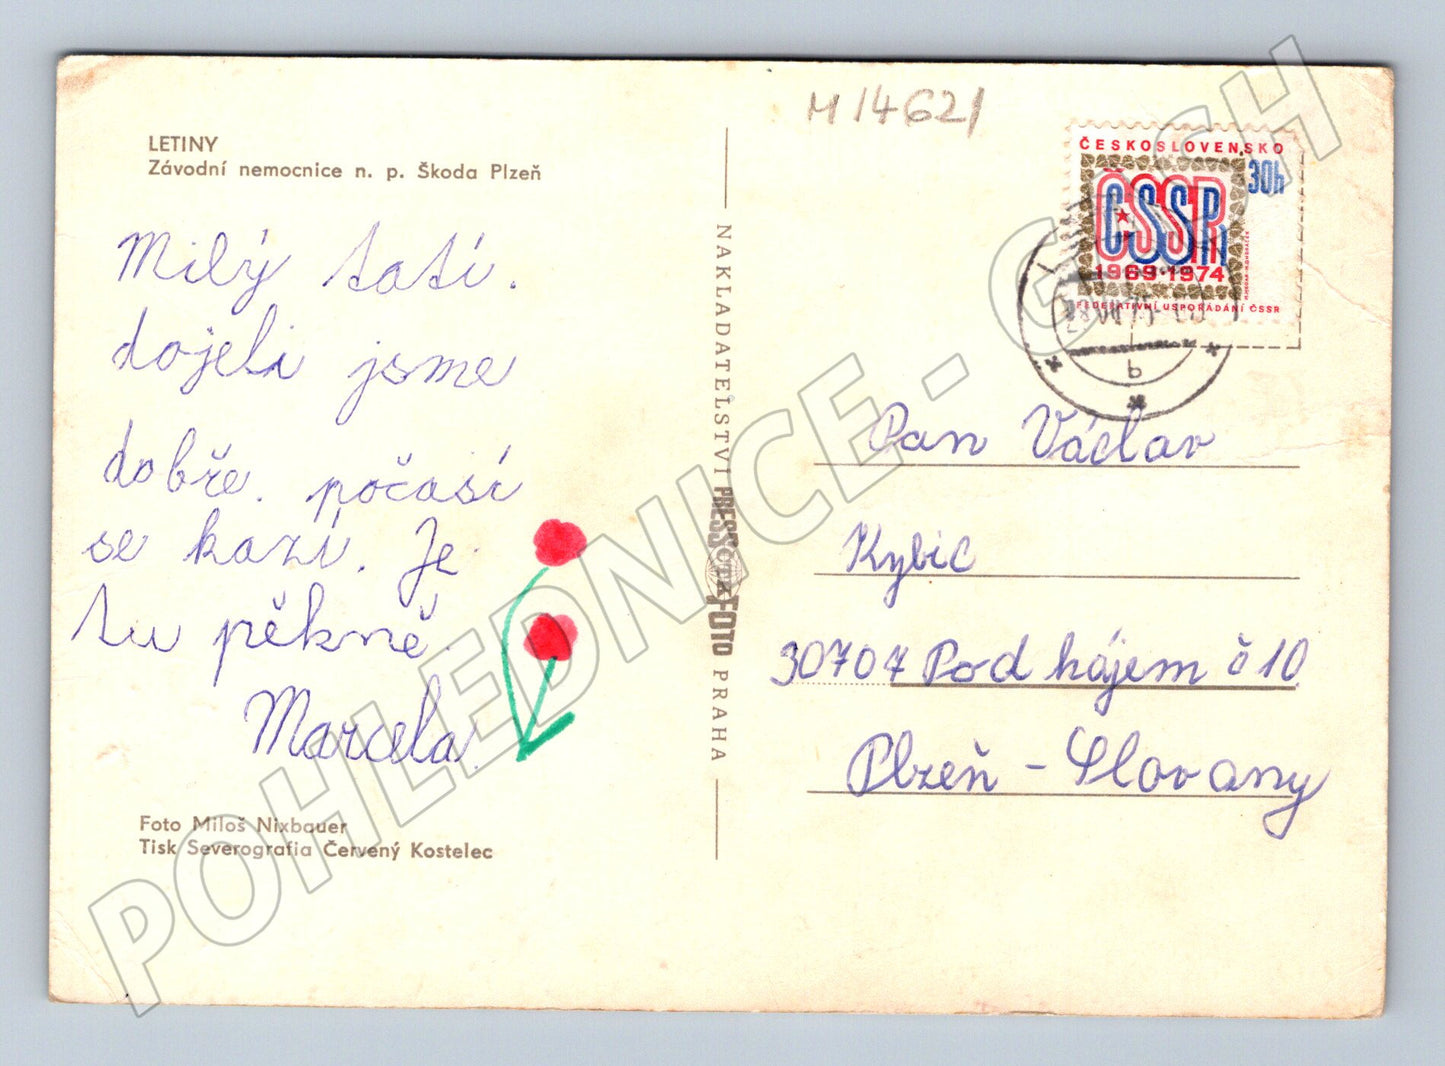 M14621
LETINY
Závodní nemocnice n. p. Škoda Plzeň
Milý tatí.
dojeli jsme
dobře. počasí
se kazí. Je
tu pěkně.
Marcela.
Foto Miloš Nixbauer
Tisk Severografia Červený Kostelec
NAKLADATELSTVÍ PRESSFOTO PRAHA
ČESKOSLOVENSKO
30h
ČSSR
1969-1974
FEDERATIVNÍ USPOŘÁDÁNÍ ČSSR
b
Pan Václav
Kybic
30707 Pod hájem č 10
Plzeň - Slovany
POHLEDNICE - G